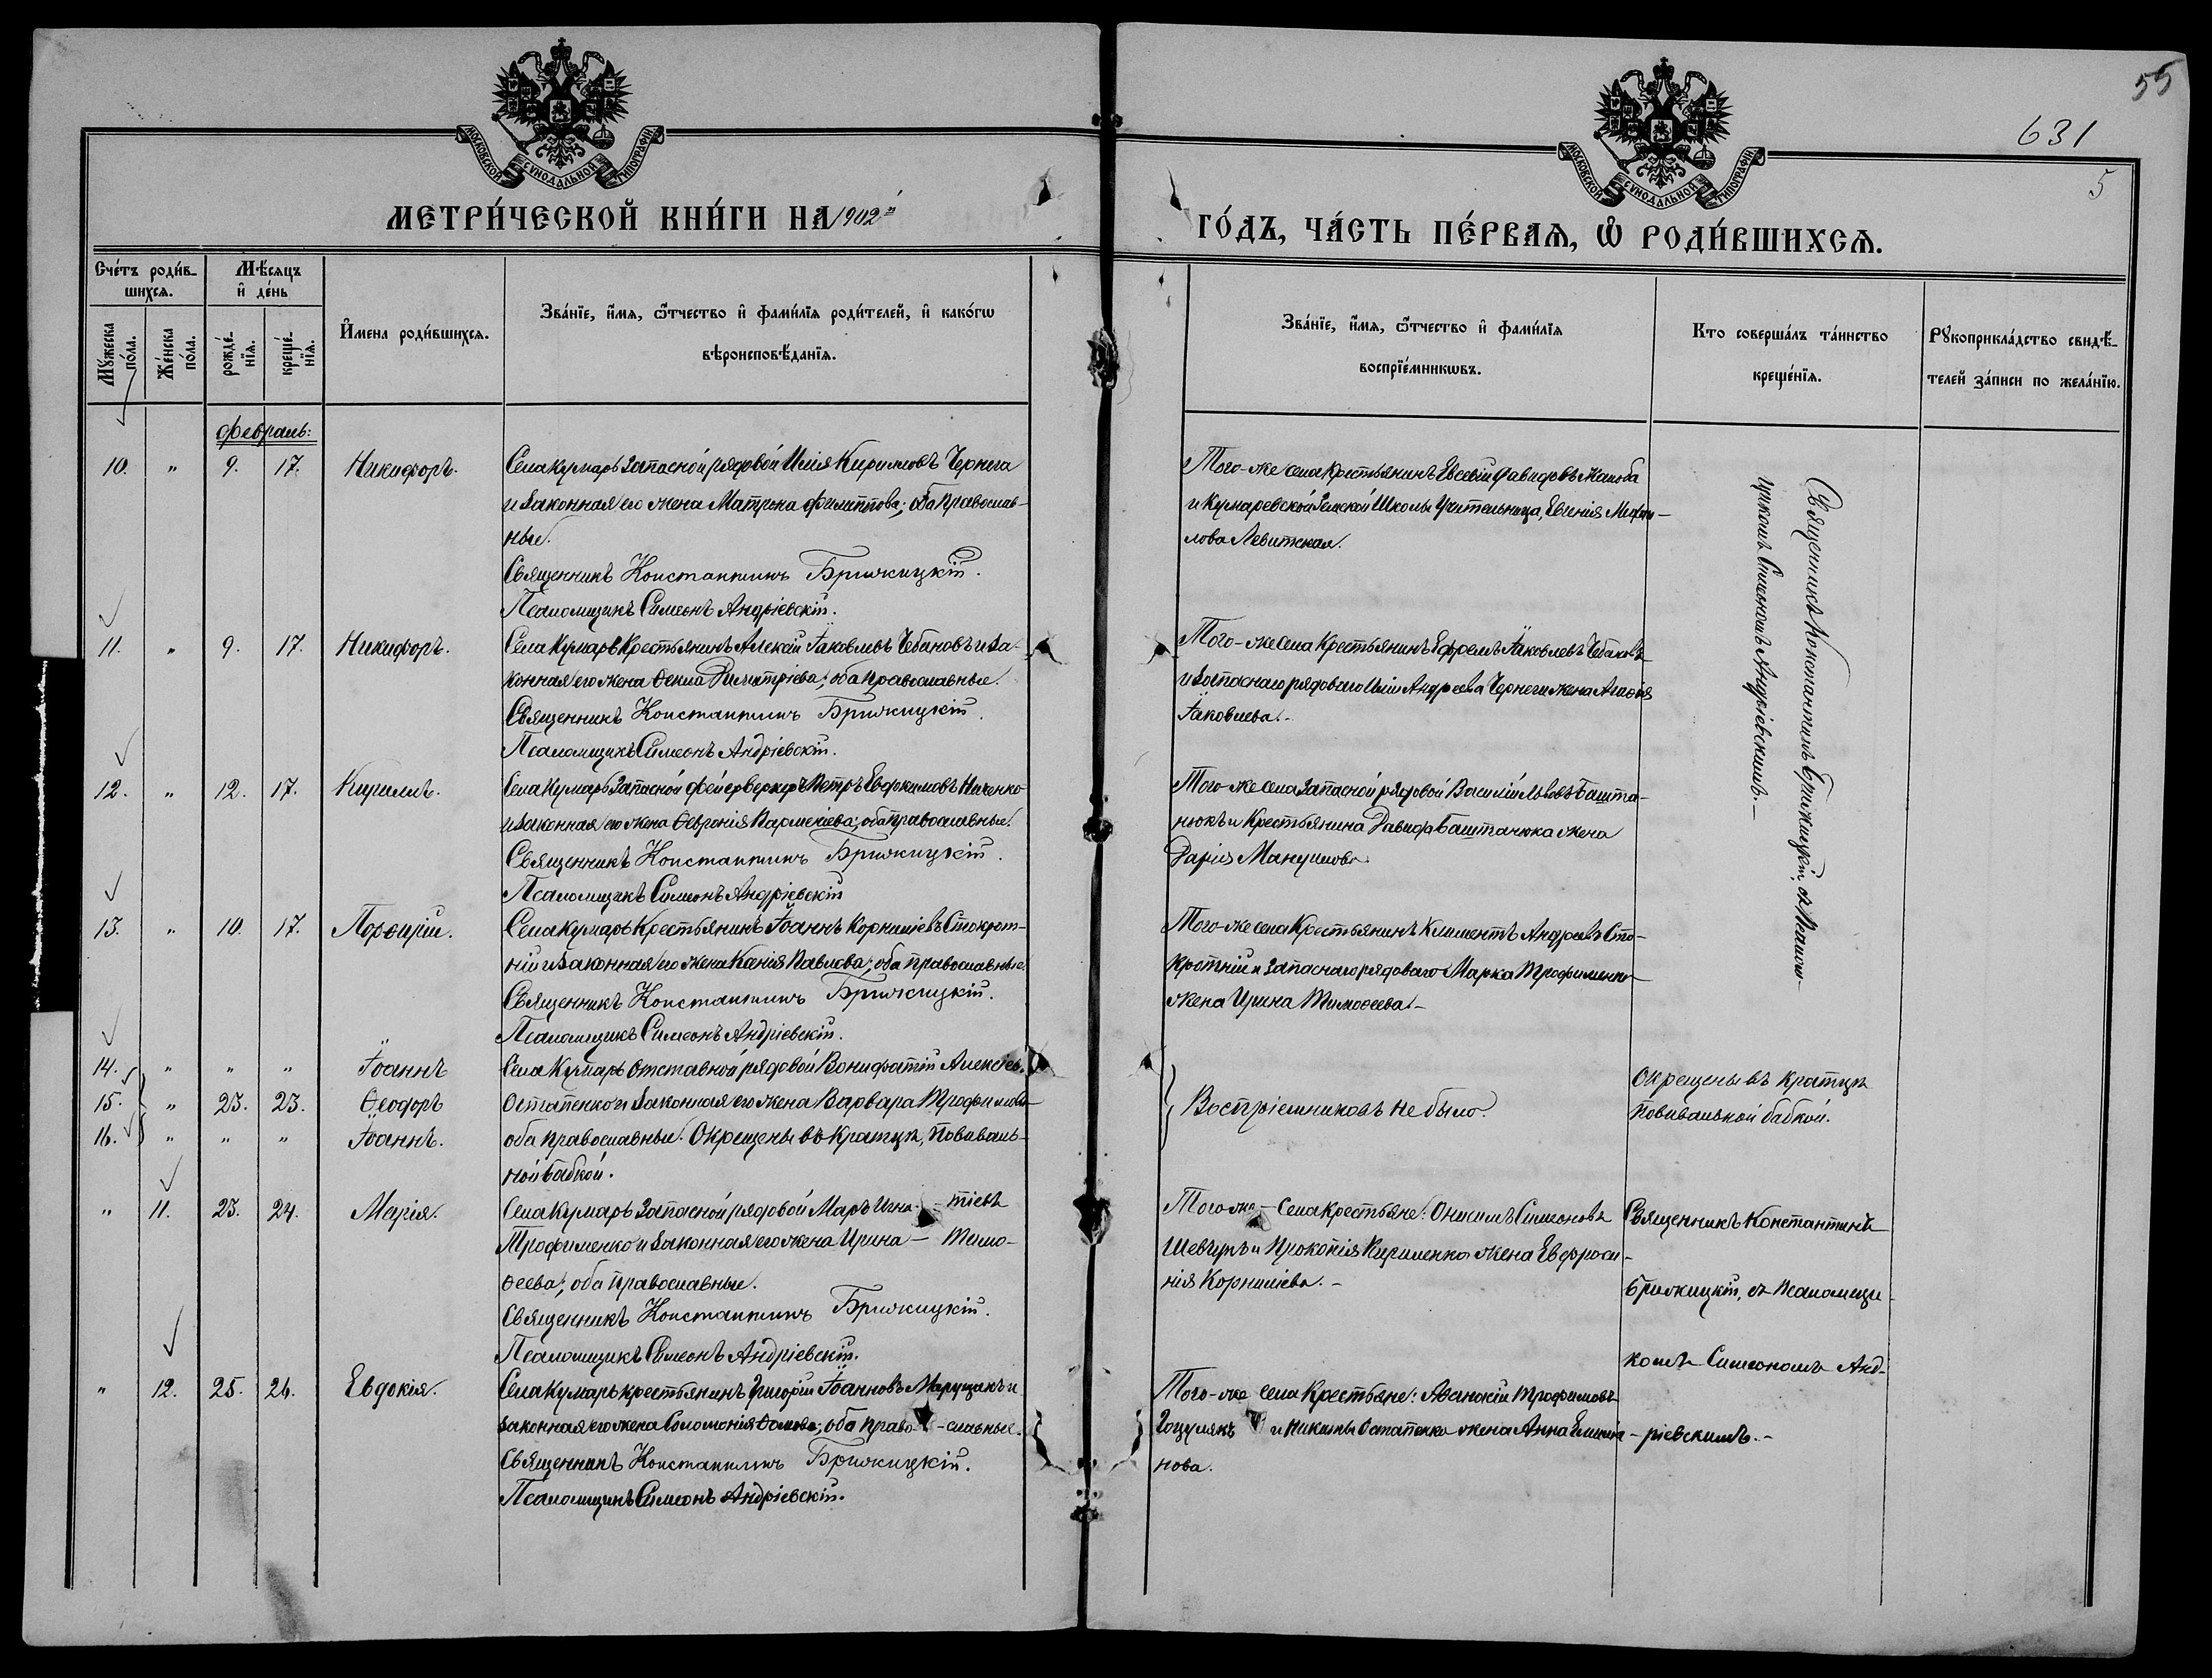 55
631
5
МОСКОВСКОЙ СУНОДАЛЬНОЙ ТИПОГРАФІИ
МОСКОВСКОЙ СУНОДАЛЬНОЙ ТИПОГРАФІИ
МЕТРИ́ЧЕСКОЙ КНИ́ГИ НА 1902й
ГО́ДЪ, ЧА́СТЬ ПЕ́РВАѦ, Ѡ҆ РОДИ́ВШИХСѦ.
Сче́тъ роди́в-
шихсѧ.
Мѣ́сѧцъ
и҆ де́нь
Мꙋ́жеска по́ла.
Же́нска по́ла.
рожде́-
нїѧ.
креще́-
нїѧ.
И҆мена роди́вшихсѧ.
Зва́нїе, и҆́мѧ, ѻ҆́тчество и҆ фами́лїѧ роди́телей, и҆ како́гѡ
вѣроисповѣ́данїѧ.
Зва́нїе, и҆́мѧ, ѻ҆́тчество и҆ фами́лїѧ
воспрїе́мникѡвъ.
Кто соверша́лъ та́инство
креще́нїѧ.
Рꙋкоприкла́дство свидѣ́-
телей за́писи по жела́нїю.
Февраль:
10. " 9. 17. Никифоръ.
Села Кумаръ запасной рядовой Илія Кирилловъ Чернега
и законная его жена Матрона Филиппова; оба православ-
ные.
Священникъ Константинъ Брижицкій.
Псаломщикъ Симеонъ Андріевскій.
Того-же села Крестьянинъ Евсевій Давидовъ Жалоба
и Кумаревской Земской Школы Учительница, Евгенія Михаи-
лова Левитская.
Священникъ Константинъ Брижицкій, съ Псалом-
щикомъ Симеономъ Андріевскимъ.-
11. " 9. 17. Никифоръ.
Села Кумаръ Крестьянинъ Алексій Іаковлевъ Чебановъ и за-
конная его жена Ѳекла Димитріева; оба православные.
Священникъ Константинъ Брижицкій.
Псаломщикъ Симеонъ Андріевскій.
Того-же села Крестьянинъ Ефремъ Іаковлевъ Чебановъ
и запаснаго рядоваго Иліи Андреева Чернеги жена Агафія
Іаковлева.-
12. " 12. 17. Кириллъ.
Села Кумаръ Запасной фейерверкеръ Петръ Евфимовъ Ниченко
и законная его жена Ѳевронія Вармекиева; оба православные.
Священникъ Константинъ Брижицкій.
Псаломщикъ Симеонъ Андріевскій
Того-же села Запасной рядовой Василій Львовъ Башта-
нюкъ и Крестьянина Давида Баштанюка жена
Дарія Мануилова.
13. " 10. 17. Порфирій.
Села Кумаръ Крестьянинъ Іоаннъ Корниліевъ Стокрот-
ній и законная его жена Ксенія Павлова; оба православные.
Священникъ Константинъ Брижицкій.
Псаломщикъ Симеонъ Андріевскій.
Того-же села Крестьянинъ Климентъ Андреевъ Сто-
кротній и запаснаго рядоваго Марка Трофименко
жена Ирина Тимоѳеева.-
14. " " " Іоаннъ
15. " 23. 23. Ѳеодоръ
16. " " " Іоаннъ.
Села Кумаръ отставной рядовой Вонифатій Алексіевъ
Остапенко и законная его жена Варвара Трофимова
оба православные. Окрещены въ кратцѣ, повиваль-
ной бабкой.
Воспріемниковъ не было.
Окрещены въ кратцѣ
повивальной бабкой.
" 11. 23. 24. Марія.
Села Кумаръ Запасной рядовой Маръ Игна - тіевъ
Трофименко и законная его жена Ирина - Тимо-
ѳеева; оба православные.
Священникъ Константинъ Брижицкій.
Псаломщикъ Симеонъ Андріевскій.
Того же - села Крестьяне: Онисимъ Симеоновъ
Шевчукъ и Прокопія Кириленко жена Евфроси-
нія Корниліева.-
Священникъ Константинъ
Брижицкій, съ Псаломщи-
комъ Симеономъ Анд-
ріевскимъ.-
" 12. 25. 26. Евдокія.
Села Кумаръ крестьянинъ Григорій Іоанновъ Марущакъ и
законная его жена Соломонія Ѳомова; оба право - славные.
Священникъ Константинъ Брижицкій.
Псаломщикъ Симеонъ Андріевскій.
Того-же села Крестьяне: Аѳанасій Трофимовъ
Гоцулякъ и Никиты Остапенко жена Анна
нова.